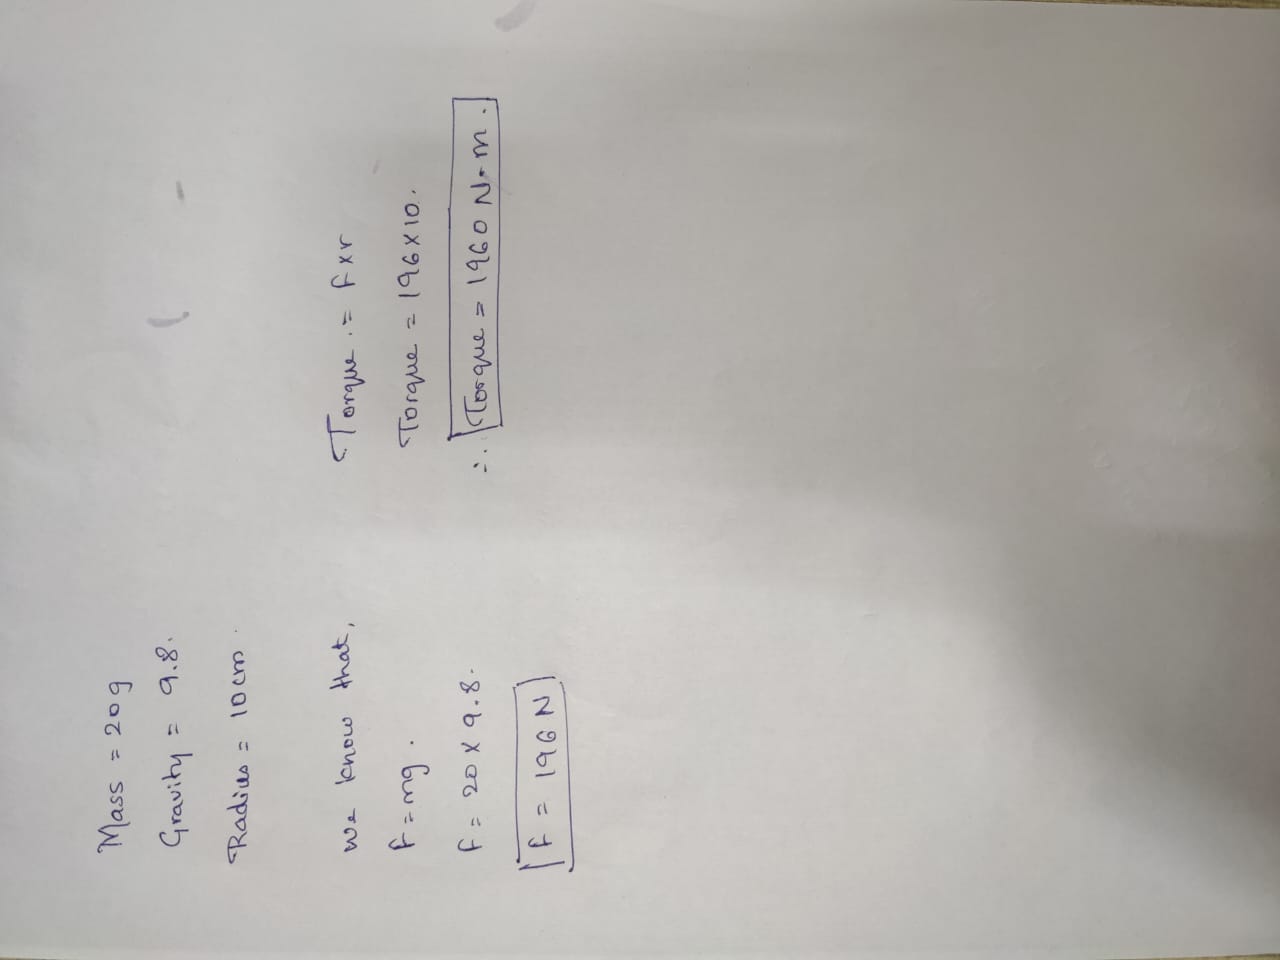 Mass = 20g
Gravity = 9.8.
Radius = 10cm.
we know that,
f = mg.
f = 20 x 9.8.
f = 196 N
Torque. = f x r
Torque = 196 x 10.
∴ Torque = 1960 N-m.